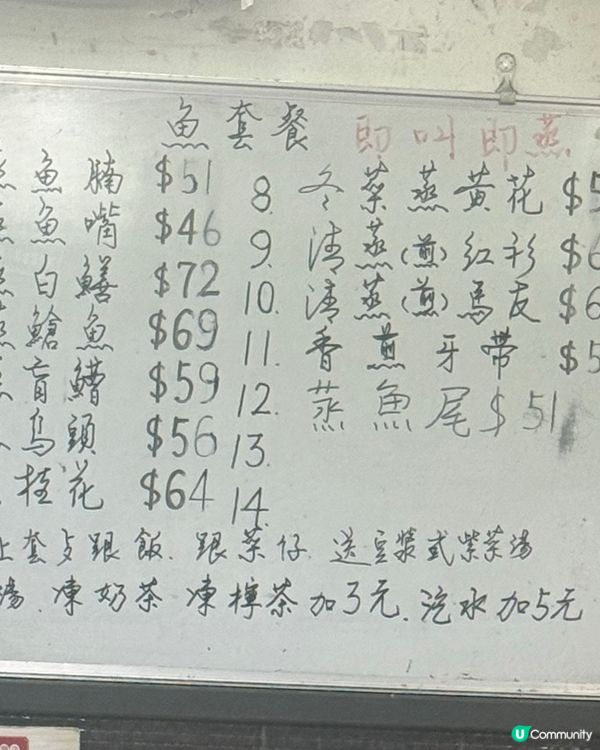 魚套餐 即叫即蒸
魚腩 $51
魚嘴 $46
白鱔 $72
鱠魚 $69
盲鰽 $59
烏頭 $56
桂花 $64
8. 冬菜蒸黃花 $5
9. 清蒸(煎)紅衫 $6
10. 清蒸(煎)馬友 $6
11. 香煎牙帶 $5
12. 蒸魚尾 $51
13.
14.
上套歺跟飯. 跟菜仔. 送豆漿或紫菜湯
湯. 凍奶茶 凍檸茶加3元. 汽水加5元
U Community